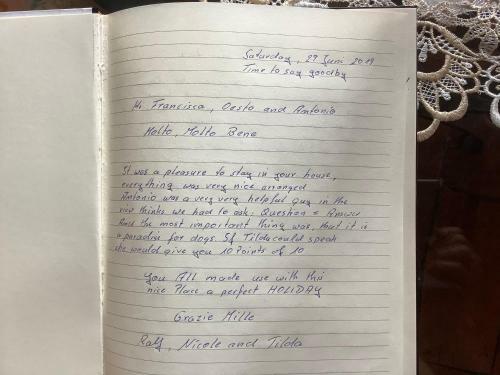 Saturday, 29 Juni 2019
Time to say goodby
Hi Francisca, Oesto and Antonio
Molto, Molto Bene
It was a pleasure to stay in your house,
everything was very nice arranged
Antonio was a very very helpful guy in the
thinks we had to ask. Question = Answer
And the most important thing was, that it is
a paradise for dogs. If Tilda could speak
she would give you 10 Points of 10
You All made use with this
nice Place a perfect HOLIDAY
Grazie Mille
Ralf, Nicole and Tilda